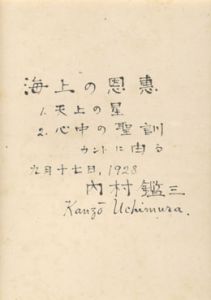 海上の恩惠
1. 天上の星
2. 心中の聖訓
カントに由る
九月十七日, 1928
內村鑑三
Kanzō Uchimura.